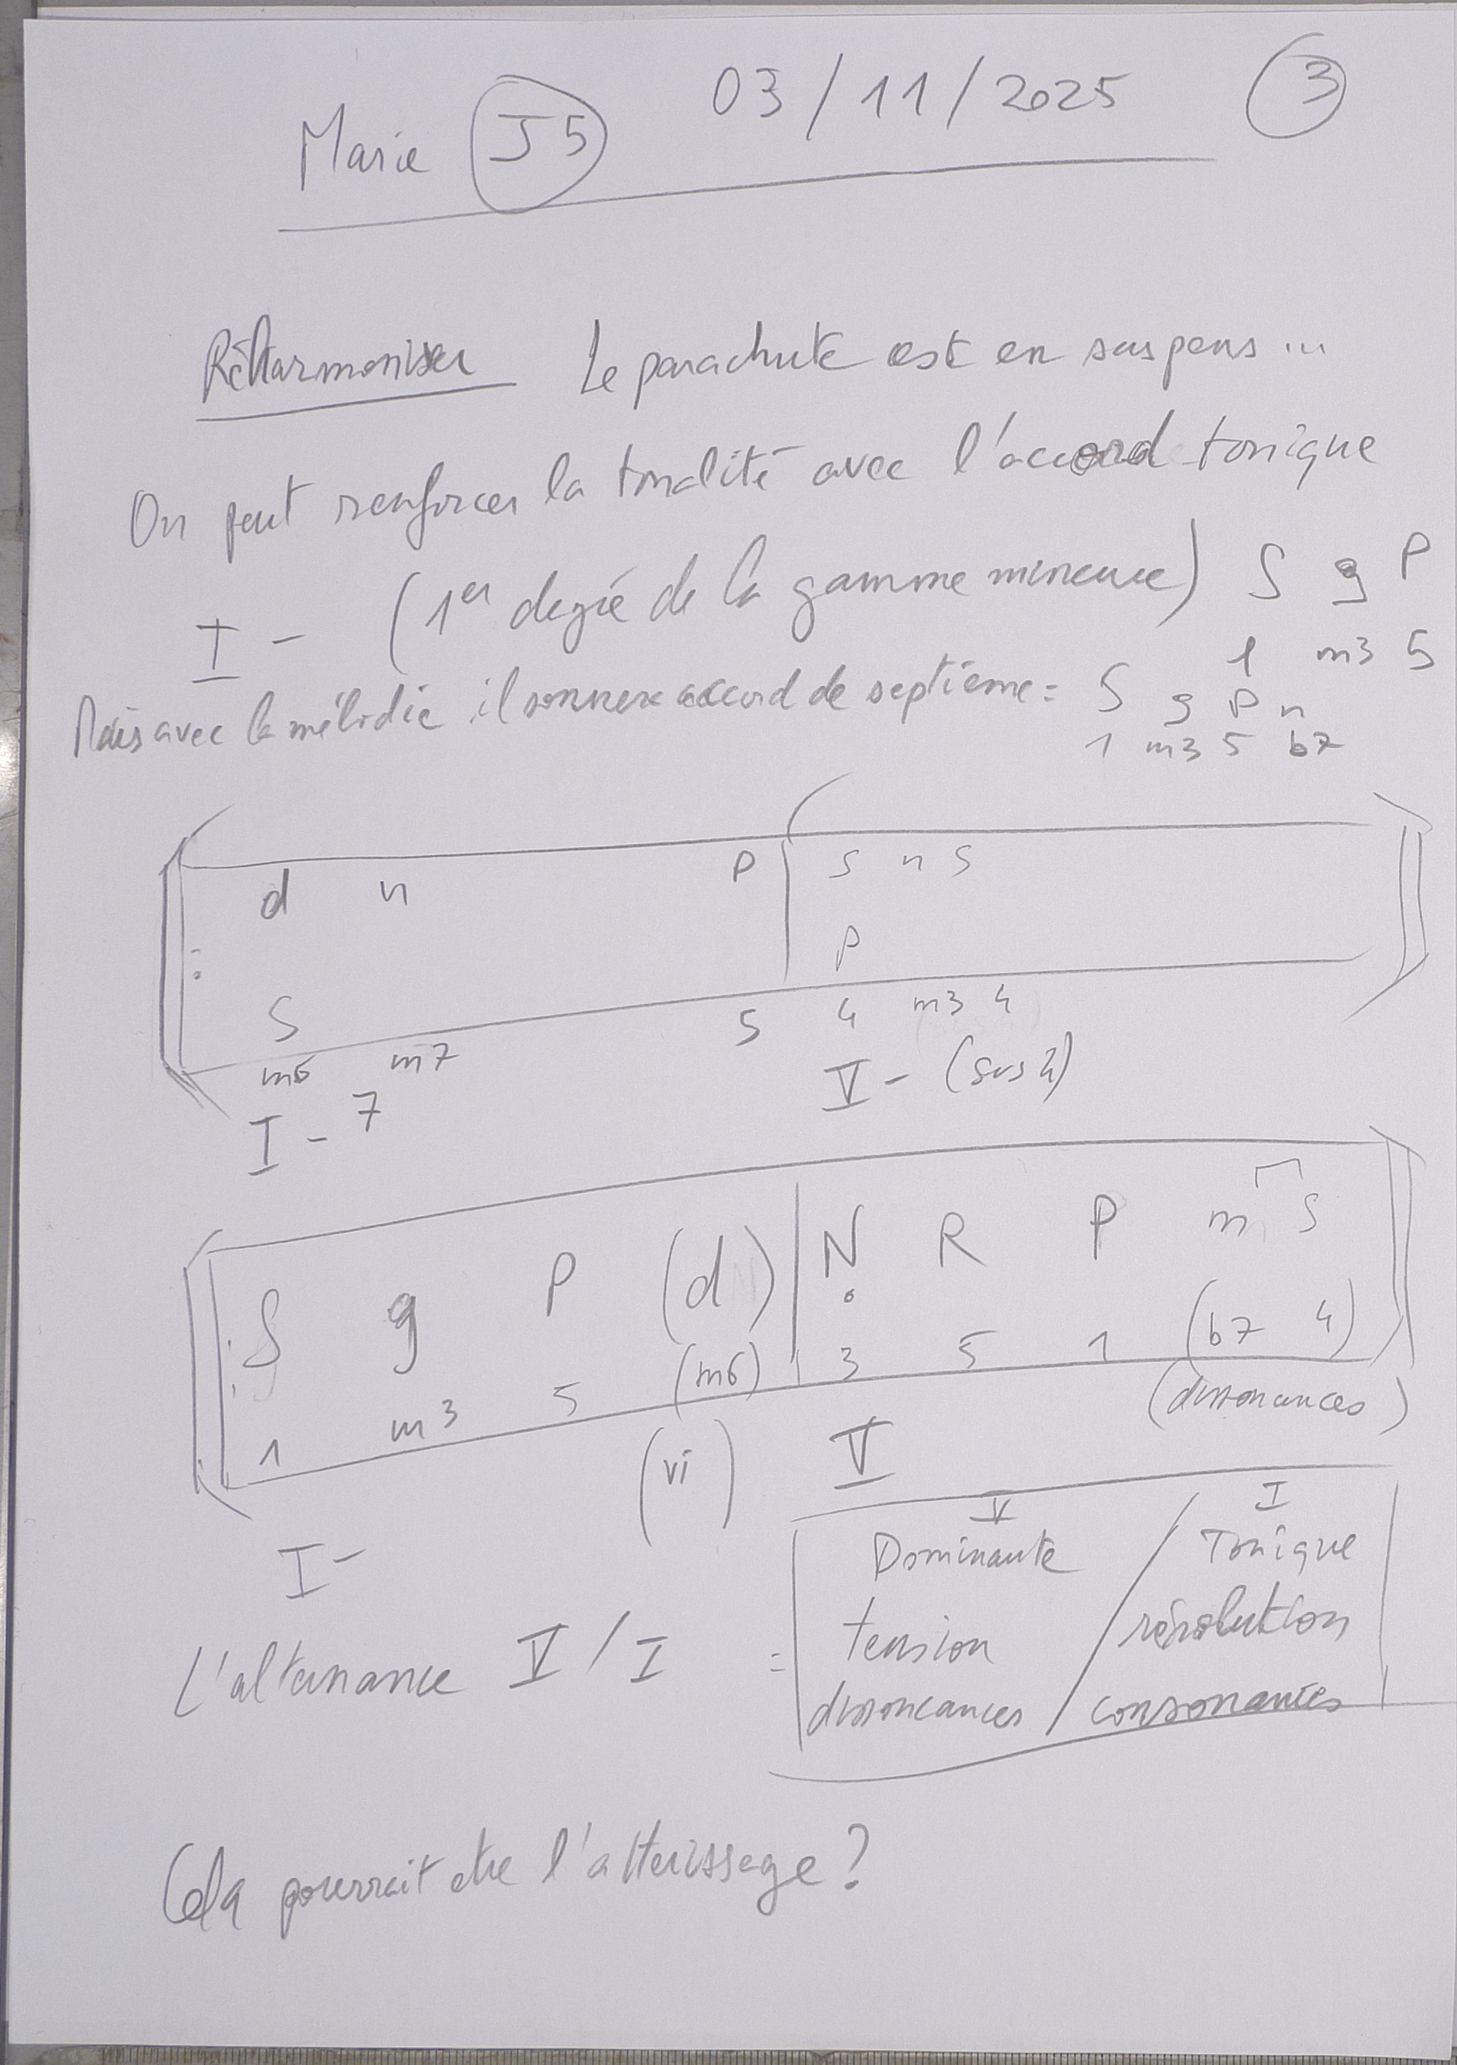 Marie J5 03/11/2025 3
Réharmoniser Le parachute est en suspens...
On peut renforcer la tonalité avec l'accord tonique
I - (1er degré de la gamme mineure) S g P
1 m3 5
Mais avec la mélodie il sonnera accord de septième = S g P n
1 m3 5 b7
d n P S n S
: P
S
m6 m7 5 4 m3 4
I - 7 V - (sus 4)
: S g P (d) N R P m S
1 m3 5 (m6) 3 5 1 (b7 4)
(dissonances)
I - (vi) V
V I
Dominante / Tonique
L'alternance V / I = tension / résolution
dissonances / consonances
Cela pourrait être l'atterissage ?